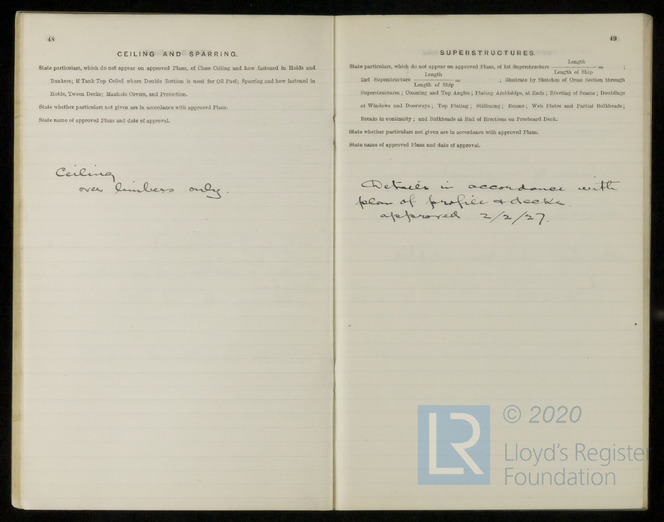 48
CEILING AND SPARRING.
State particulars, which do not appear on approved Plans, of Close Ceiling and how fastened in Holds and
Bunkers; if Tank Top Ceiled where Double Bottom is used for Oil Fuel; Sparring and how fastened in
Holds, Tween Decks; Manhole Covers, and Protection.
State whether particulars not given are in accordance with approved Plans.
State name of approved Plans and date of approval.
Ceiling
over limbers only.
49
SUPERSTRUCTURES.
State particulars, which do not appear on approved Plans, of 1st Superstructure Length / Length of Ship = ;
2nd Superstructure Length / Length of Ship = ; Illustrate by Sketches of Cross Section through
Superstructures; Coaming and Top Angles; Plating Amidships, at Ends; Riveting of Seams; Doublings
at Windows and Doorways; Top Plating; Stiffening; Beams; Web Plates and Partial Bulkheads;
Breaks in continuity; and Bulkheads at End of Erections on Freeboard Deck.
State whether particulars not given are in accordance with approved Plans.
State name of approved Plans and date of approval.
Details in accordance with
plan of profile & decks
approved 2/2/27.
LR
© 2020
Lloyd's Register
Foundation